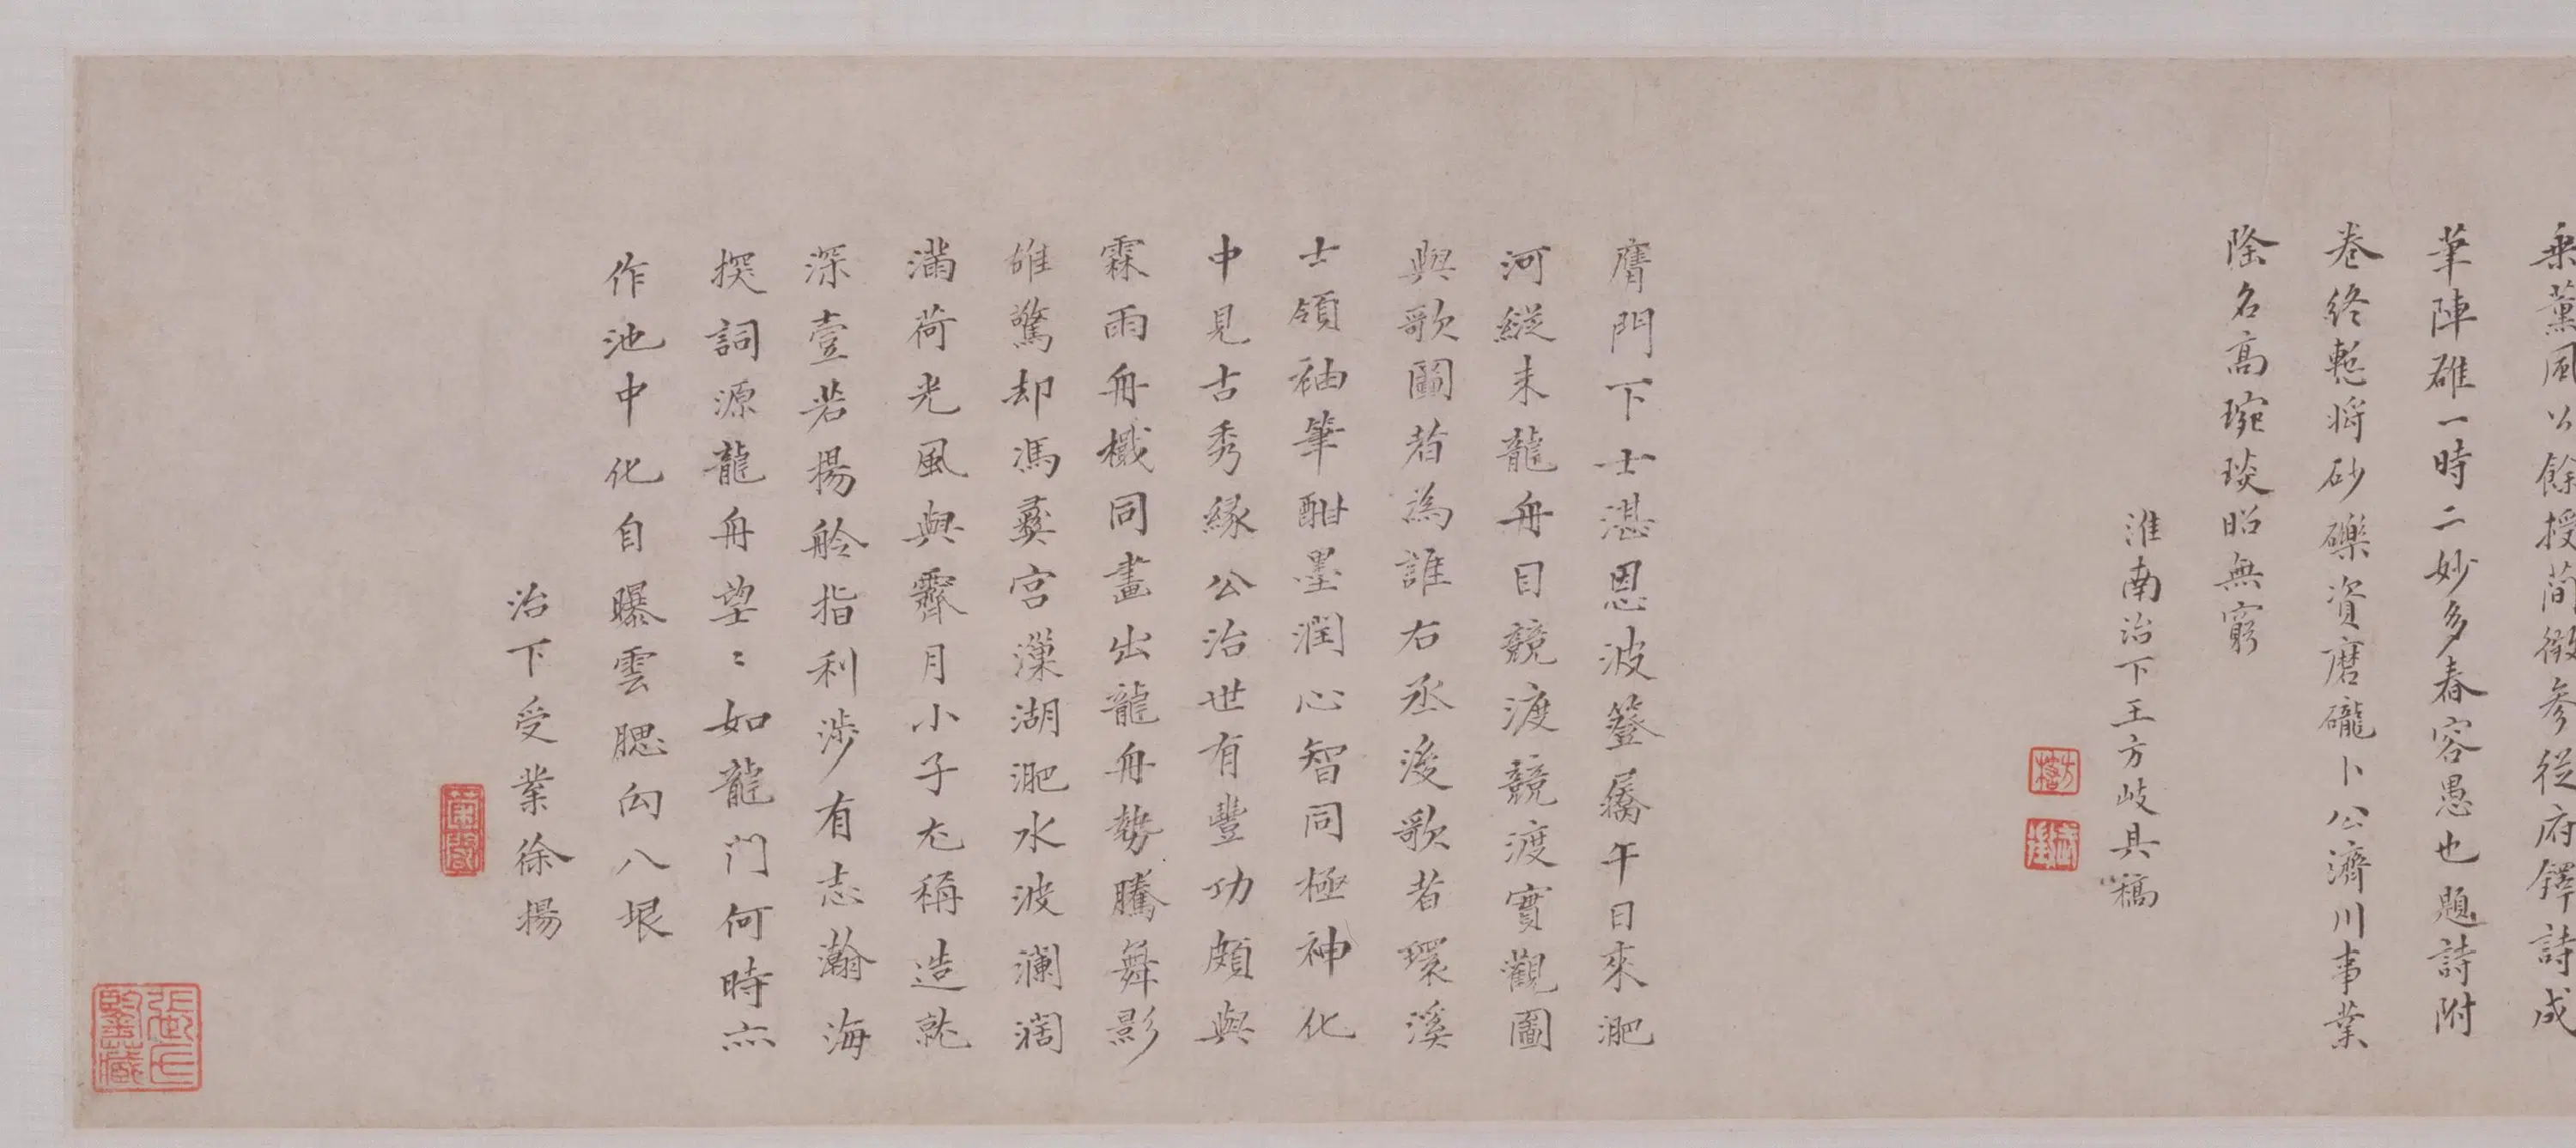 乘薰風公餘授簡徵參從府鐸詩成
筆陣雄一時二妙多春容愚也題詩附
卷終慙將砂礫資磨礲卜公濟川事業
隆名高琬琰昭無窮
淮南治下王方岐具稿
膺門下士湛恩波簦屩午日來淝
河縱未龍舟目競渡競渡實觀圖
與歌圖者為誰右丞後歌者環溪
士領袖筆酣墨潤心智同極神化
中見古秀緣公治世有豐功頗與
霖雨舟檝同畫出龍舟勢騰舞影
雄驚却馮彝宮漅湖淝水波瀾濶
滿荷光風與霽月小子尢稱造就
深壹若揚舲指利涉有志瀚海
探詞源龍舟望〻如龍门何時亦
作池中化自曝雲腮向八垠
治下受業徐揚
張氏
鑒藏